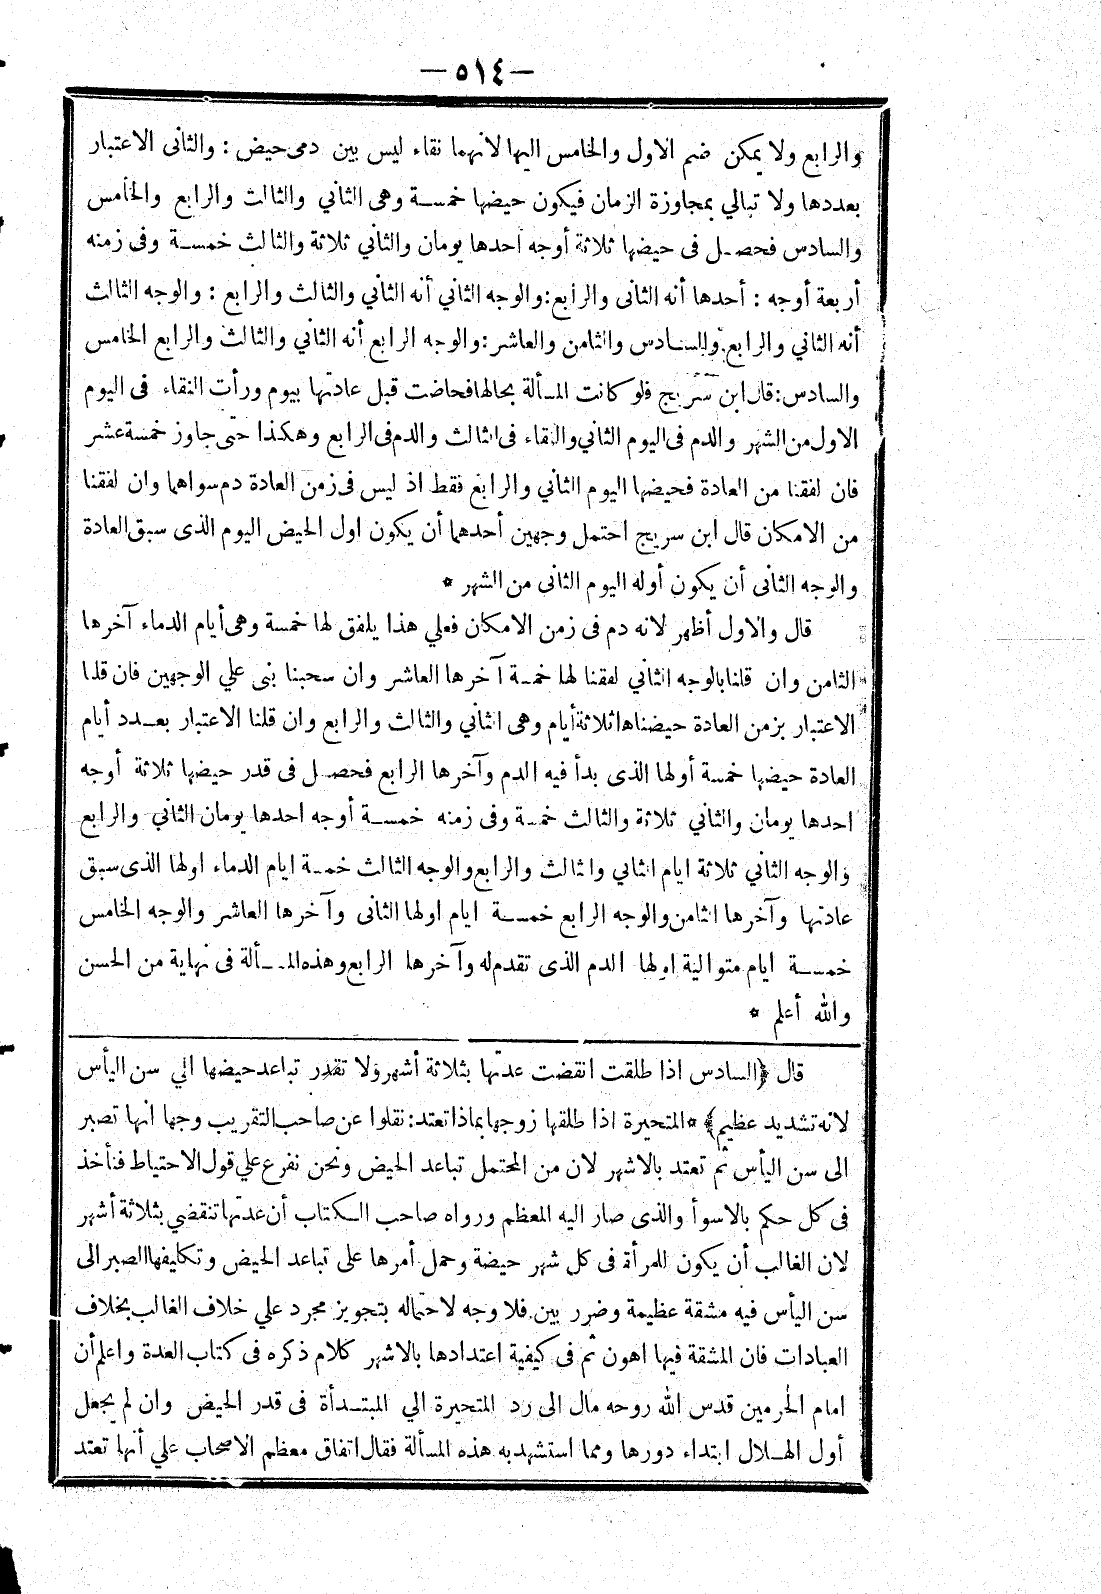 — ٥١٤ —
والرابع ولا يمكن ضم الاول والخامس اليها لانهما نقاء ليس بين دمى حيض : والثانى الاعتبار
بعددها ولا تبالي بمجاوزة الزمان فيكون حيضها خمسة وهى الثاني والثالث والرابع والخامس
والسادس فحصل فى حيضها ثلاثة أوجه احدها يومان والثاني ثلاثة والثالث خمسة وفى زمنه
أربعة أوجه : أحدها أنه الثانى والرابع : والوجه الثاني أنه الثاني والثالث والرابع : والوجه الثالث
أنه الثاني والرابع والسادس والثامن والعاشر : والوجه الرابع أنه الثاني والثالث والرابع الخامس
والسادس : قال ابن سريج فلو كانت المسألة بحالها فحاضت قبل عادتها بيوم ورأت النقاء فى اليوم
الاول من الشهر والدم فى اليوم الثاني والنقاء فى الثالث والدم فى الرابع وهكذا حتى جاوز خمسة عشر
فان لفقنا من العادة فحيضها اليوم الثاني والرابع فقط اذ ليس فى زمن العادة دم سواهما وان لفقنا
من الامكان قال ابن سريج احتمل وجهين أحدهما أن يكون اول الحيض اليوم الذى سبق العادة
والوجه الثانى أن يكون أوله اليوم الثانى من الشهر *
قال والاول أظهر لانه دم فى زمن الامكان فعلي هذا يلفق لها خمسة وهى أيام الدماء آخرها
الثامن وان قلنا بالوجه الثاني لفقنا لها خمسة آخرها العاشر وان سحبنا بنى علي الوجهين فان قلنا
الاعتبار بزمن العادة حيضناها ثلاثة أيام وهى الثاني والثالث والرابع وان قلنا الاعتبار بعدد أيام
العادة حيضها خمسة أولها الذى بدأ فيه الدم وآخرها الرابع فحصل فى قدر حيضها ثلاثة أوجه
احدها يومان والثاني ثلاثة والثالث خمسة وفى زمنه خمسة أوجه احدها يومان الثاني والرابع
والوجه الثاني ثلاثة ايام الثاني والثالث والرابع والوجه الثالث خمسة ايام الدماء اولها الذى سبق
عادتها وآخرها الثامن والوجه الرابع خمسة ايام اولها الثانى وآخرها العاشر والوجه الخامس
خمسة ايام متوالية اولها الدم الذى تقدم له وآخرها الرابع وهذه المسألة فى نهاية من الحسن
والله أعلم *
قال ﴿السادس اذا طلقت انقضت عدتها بثلاثة أشهر ولا تقدر تباعد حيضها الي سن اليأس
لانه تشديد عظيم﴾ * المتحيرة اذا طلقها زوجها بماذا تعتد : نقلوا عن صاحب التقريب وجها انها تصبر
الى سن اليأس ثم تعتد بالاشهر لان من المحتمل تباعد الحيض ونحن نفرع علي قول الاحتياط فنأخذ
فى كل حكم بالاسوأ والذى صار اليه المعظم ورواه صاحب الكتاب أن عدتها تنقضي بثلاثة أشهر
لان الغالب أن يكون للمرأة فى كل شهر حيضة وحمل أمرها على تباعد الحيض وتكليفها الصبر الى
سن اليأس فيه مشقة عظيمة وضرر بين فلا وجه لاحتماله بتجويز مجرد علي خلاف الغالب بخلاف
العبادات فان المشقة فيها اهون ثم فى كيفية اعتدادها بالاشهر كلام ذكره فى كتاب العدة واعلم أن
امام الحرمين قدس الله روحه مال الى رد المتحيرة الي المبتدأة فى قدر الحيض وان لم يجعل
أول الهلال ابتداء دورها ومما استشهد به هذه المسألة فقال اتفاق معظم الاصحاب علي أنها تعتد